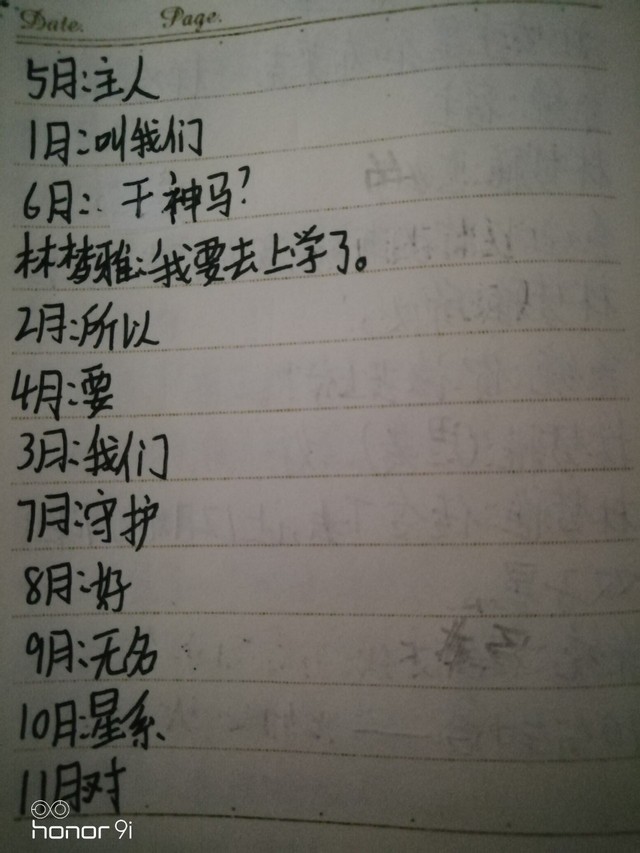 Date. Page.
5月:主人
1月:叫我们
6月:干神马?
林梦雅:我要去上学了。
2月:所以
4月:要
3月:我们
7月:守护
8月:好
9月:无名
10月:星系
11月对
honor 9i